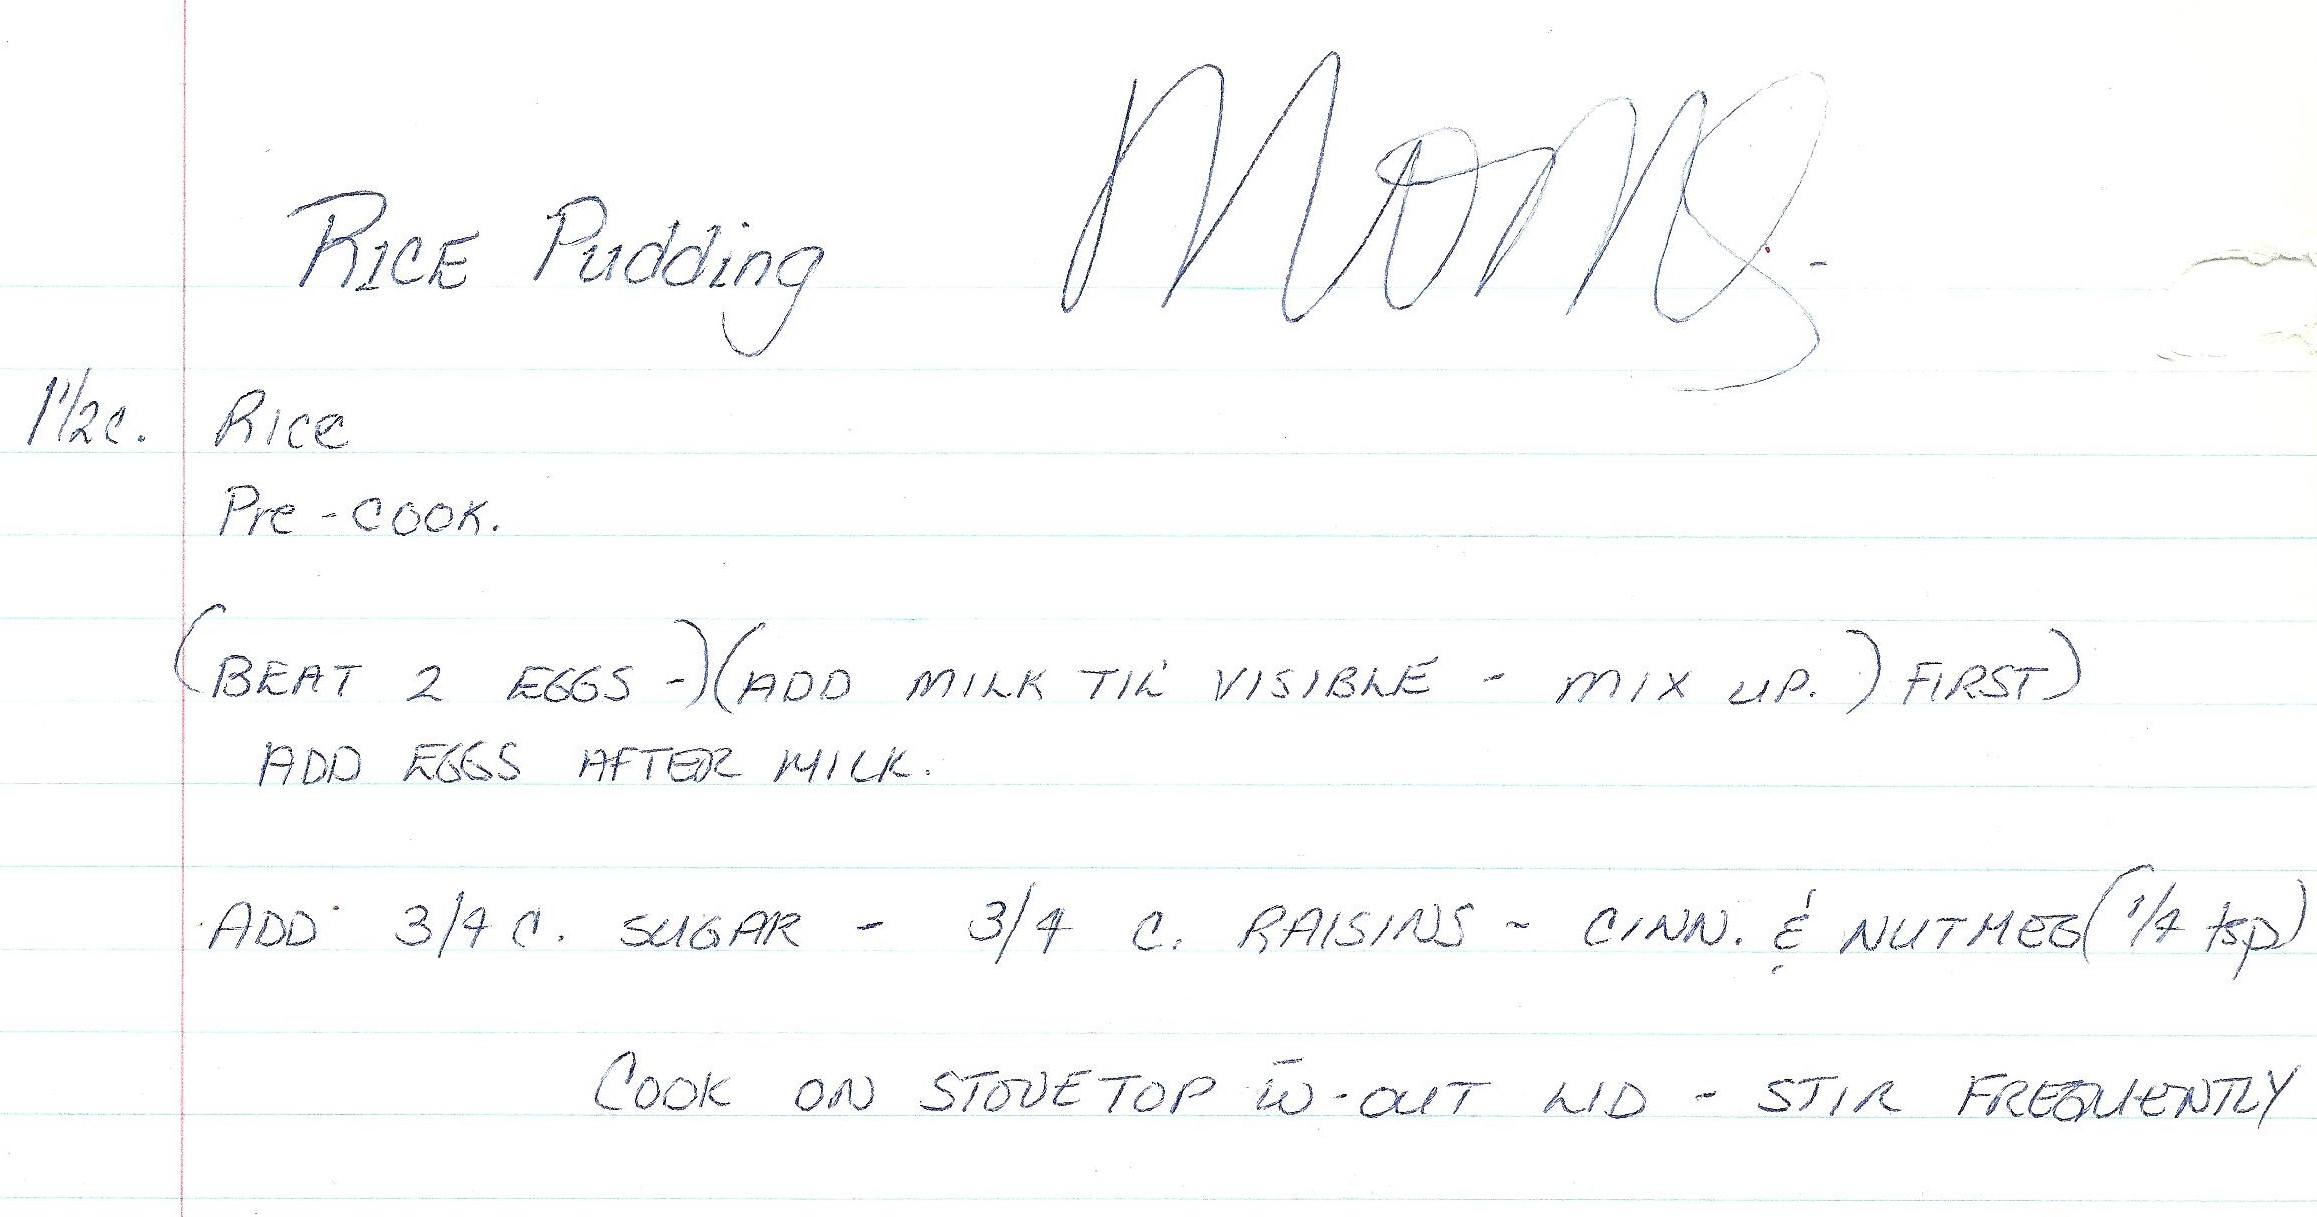 Rice Pudding Moms -
1 1/2 c. Rice
Pre-cook.
(BEAT 2 EGGS -) (ADD MILK TIL' VISIBLE - MIX UP.) FIRST)
ADD EGGS AFTER MILK.
ADD 3/4 C. SUGAR - 3/4 C. RAISINS - CINN. & NUTMEG (1/4 tsp)
COOK ON STOVETOP W̄-OUT LID - STIR FREQUENTLY